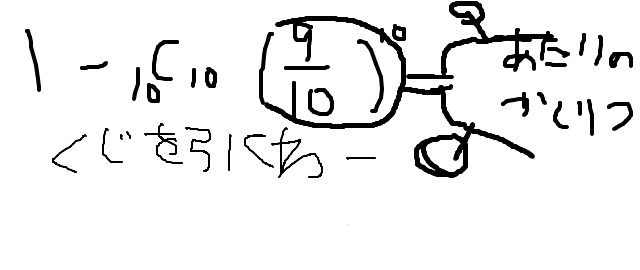 1 - ₁₀C₁₀ (9/10)¹⁰ = あたりの
かくりつ
くじを引くわー